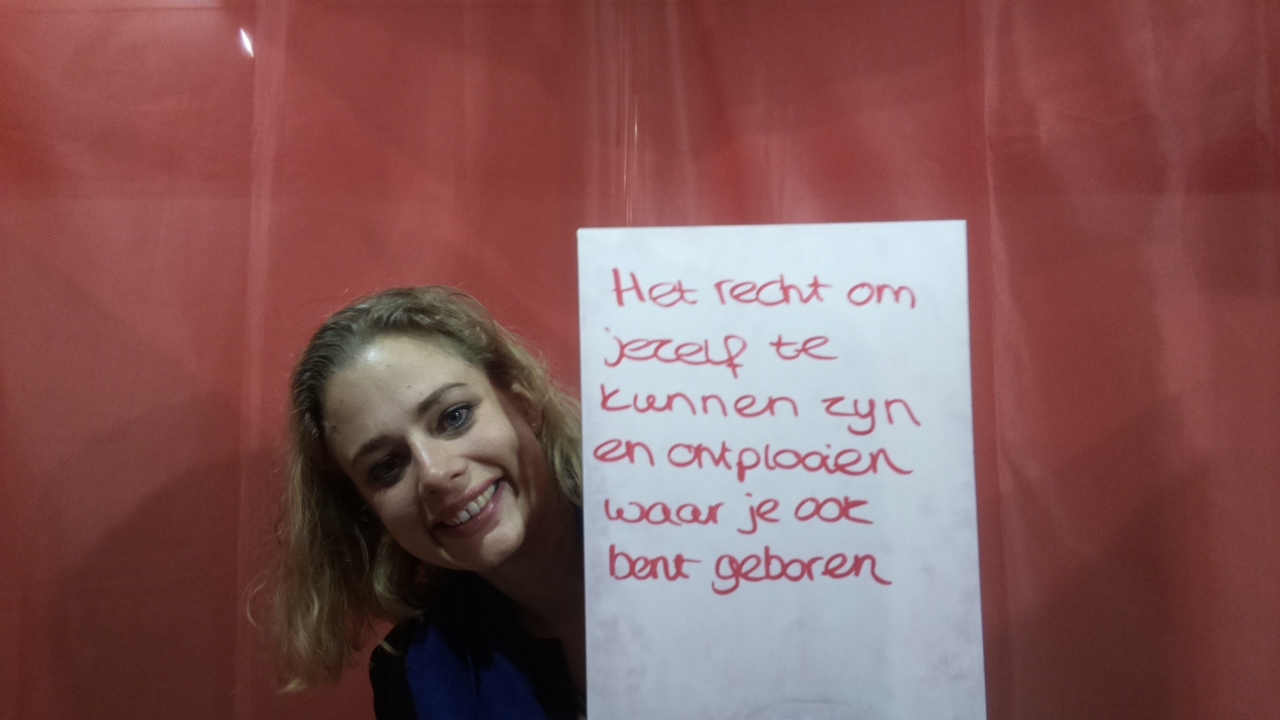 Het recht om
jezelf te
kunnen zyn
en ontplooien
waar je ook
bent geboren